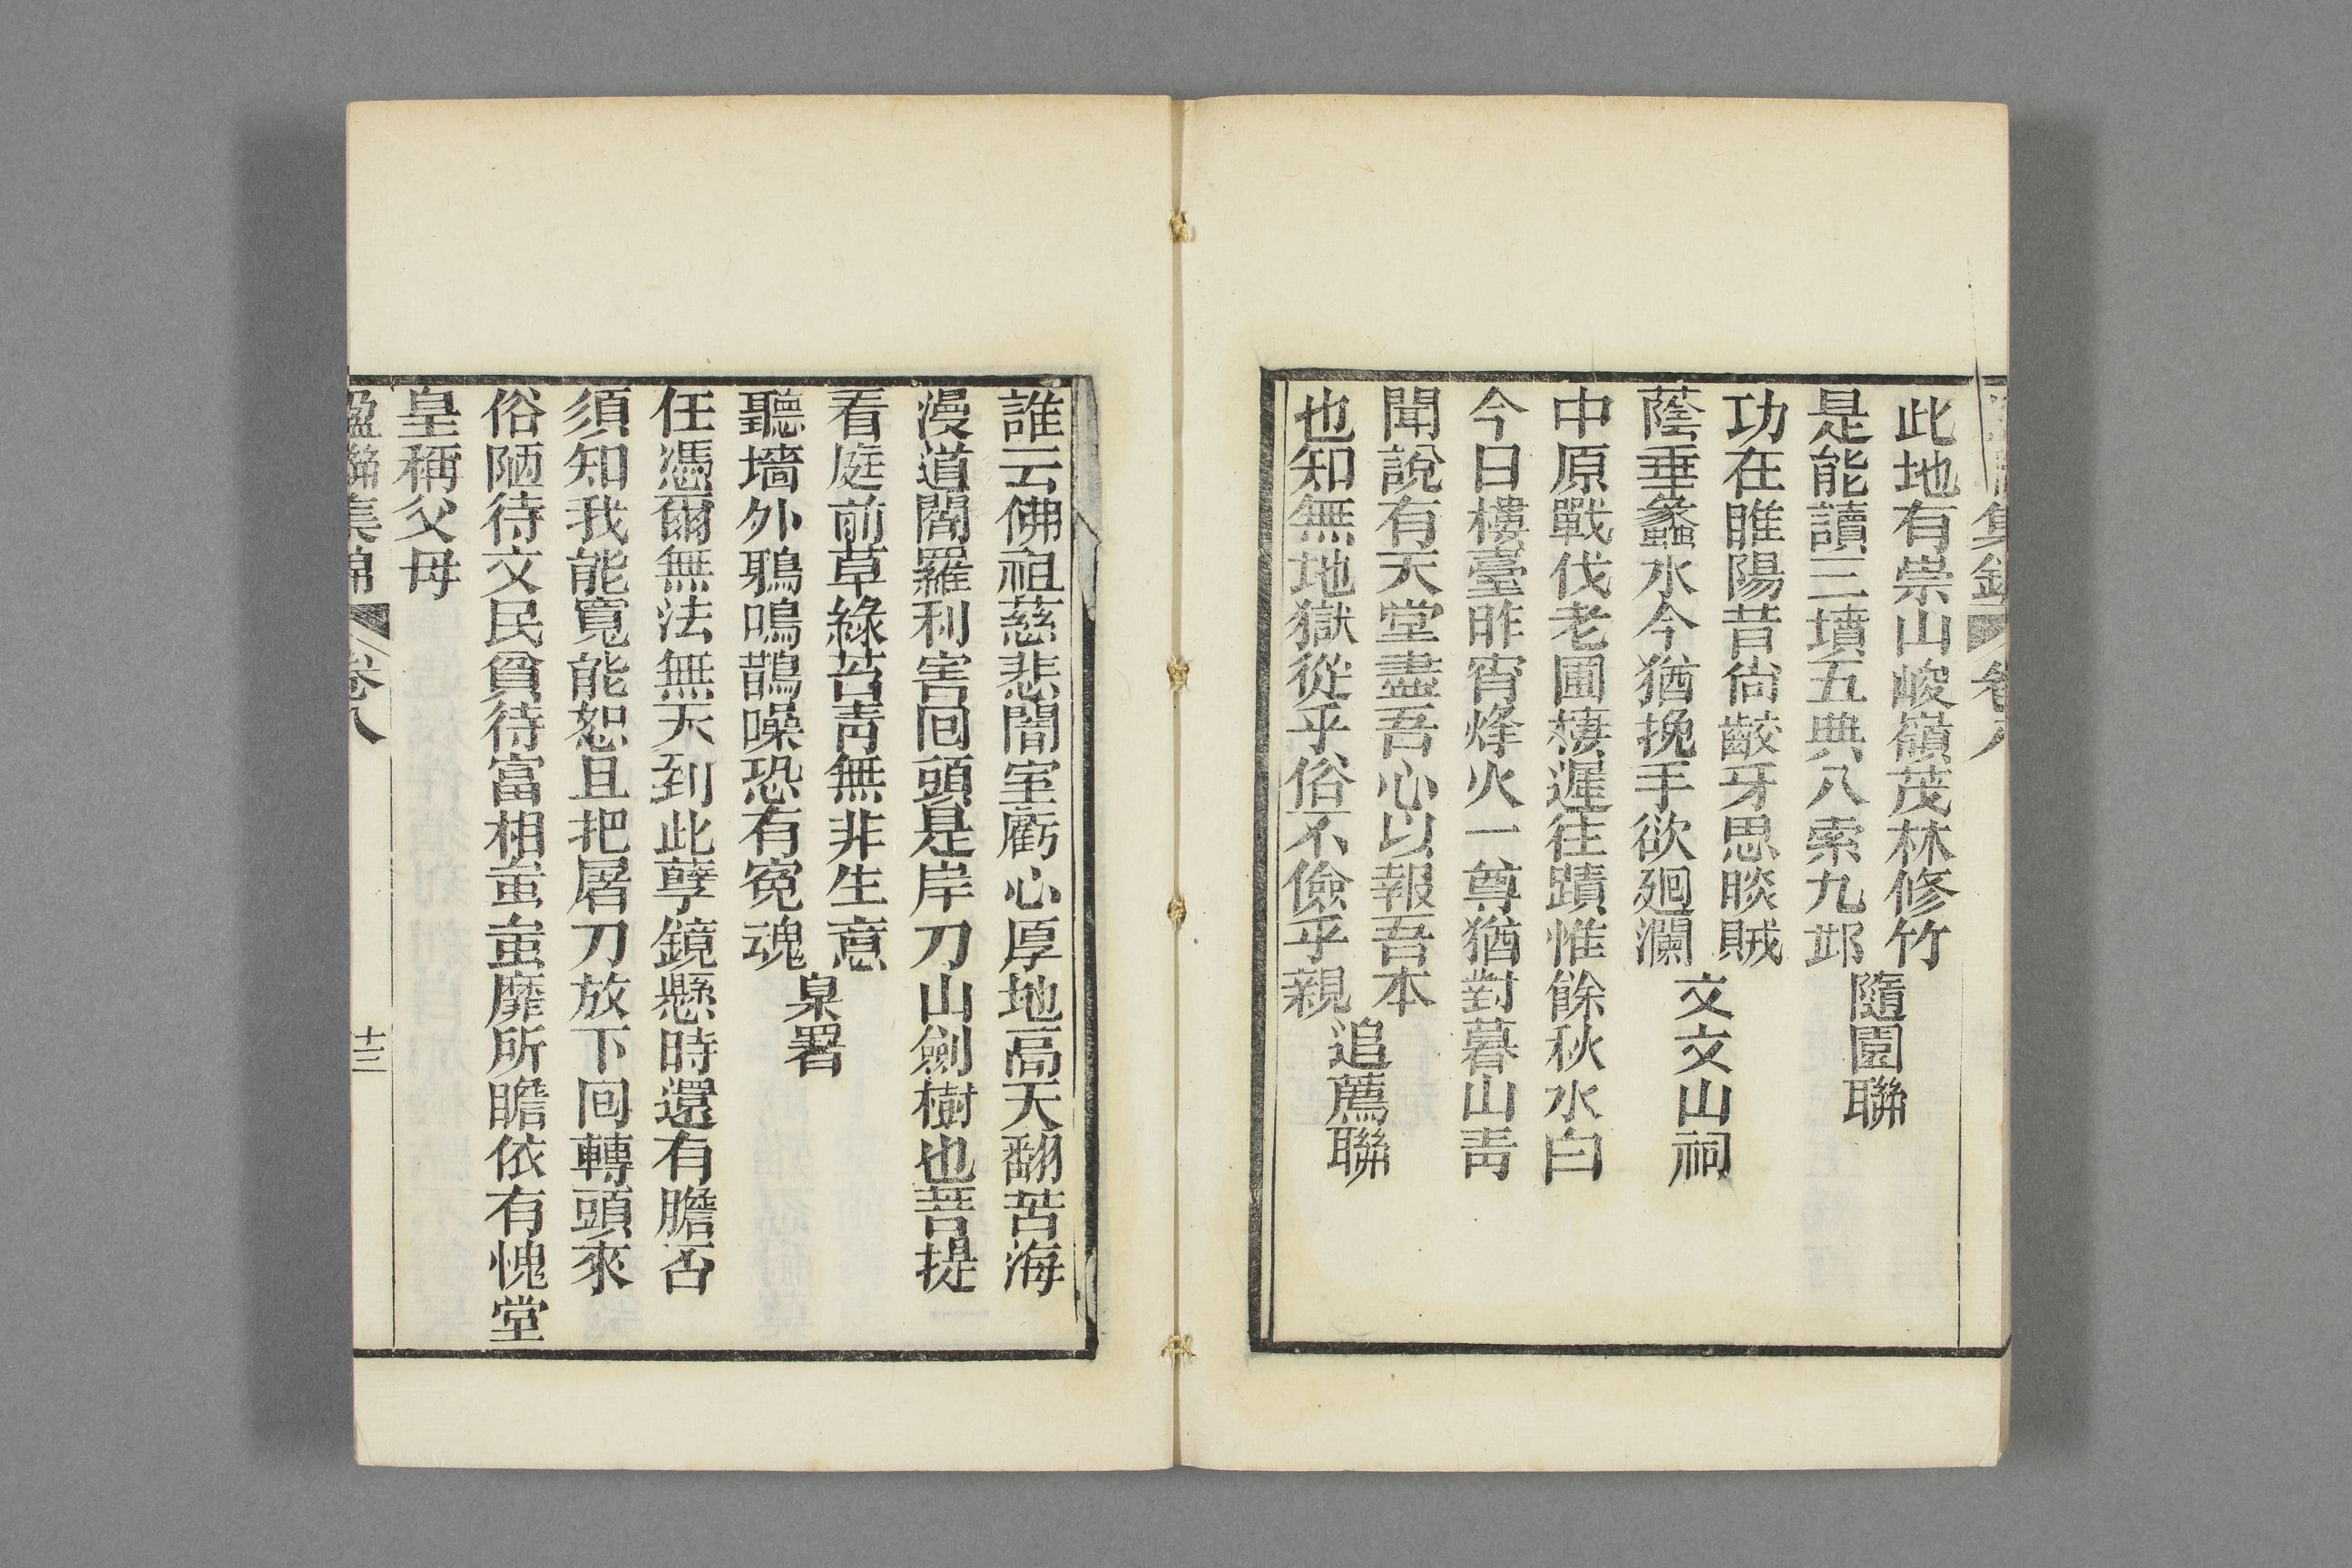 此地有崇山峻嶺茂林修竹
是能讀三墳五典八索九邱
隨園聯
功在睢陽昔尙齩牙思啖賊
蔭垂蠡水今猶挽手欲廻瀾
文文山祠
中原戰伐老圃棲遲往蹟惟餘秋水白
今日樓臺昨宵烽火一尊猶對暮山靑
聞說有天堂盡吾心以報吾本
也知無地獄從乎俗不儉乎親
追薦聯
誰云佛祖慈悲闇室虧心厚地高天翻苦海
漫道閻羅利害回頭是岸刀山劍樹也菩提
看庭前草綠苔靑無非生意
聽墻外鴉鳴鵲噪恐有寃魂
臬署
任憑爾無法無天到此孽鏡懸時還有膽否
須知我能寬能恕且把屠刀放下回轉頭來
俗陋待文民貧待富相蚩蚩靡所瞻依有愧堂
皇稱父母
楹聯集錦 卷八 十三